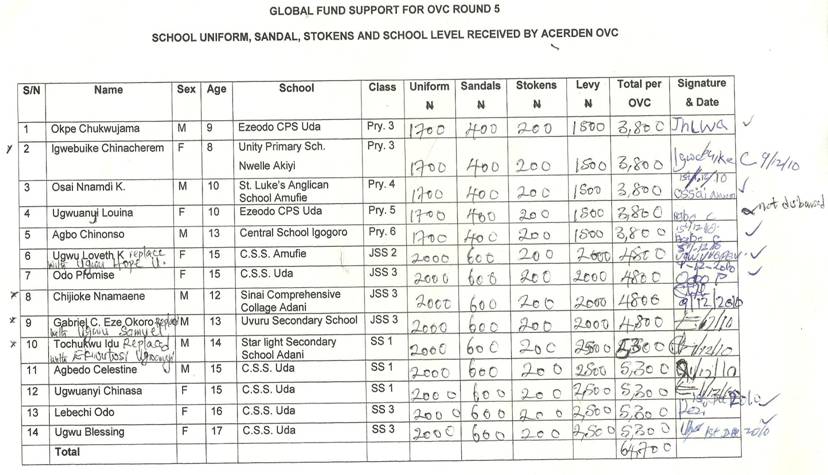 GLOBAL FUND SUPPORT FOR OVC ROUND 5
SCHOOL UNIFORM, SANDAL, STOKENS AND SCHOOL LEVEL RECEIVED BY ACERDEN OVC
S/N Name Sex Age School Class Uniform Sandals Stokens Levy Total per Signature
₦ ₦ ₦ ₦ OVC & Date
1 Okpe Chukwujama M 9 Ezeodo CPS Uda Pry. 3 1700 400 200 1500 3,800
2 Igwebuike Chinacherem F 8 Unity Primary Sch. Pry. 3
Nwelle Akiyi 1700 400 200 1500 3,800 Igwebuike C 9/12/10
3 Osai Nnamdi K. M 10 St. Luke's Anglican Pry. 4
School Amufie 1700 400 200 1500 3,800 Ossai
4 Ugwuanyi Louina F 10 Ezeodo CPS Uda Pry. 5 1700 400 200 1500 3,800 not disbursed
5 Agbo Chinonso M 13 Central School Igogoro Pry. 6 1700 400 200 1500 3,800
6 Ugwu Loveth K replace F 15 C.S.S. Amufie JSS 2 2000 600 200 2000 4800
with Ugwu Hope U.
7 Odo Promise F 15 C.S.S. Uda JSS 3 2000 600 200 2000 4800 Odo P
8 Chijioke Nnamaene M 12 Sinai Comprehensive JSS 3
Collage Adani 2000 600 200 2000 4800 9/12/2010
9 Gabriel C. Eze Okoro Replace M 13 Uvuru Secondary School JSS 3 2000 600 200 2000 4,800
with Ugwu Samuel
10 Tochukwu Idu Replaced M 14 Star light Secondary SS 1
with School Adani 2000 600 200 2500 5300
11 Agbedo Celestine M 15 C.S.S. Uda SS 1 2000 600 200 2500 5,300
12 Ugwuanyi Chinasa F 15 C.S.S. Uda SS 1 2000 600 200 2,500 5,300
13 Lebechi Odo F 16 C.S.S. Uda SS 3 2000 600 200 2,500 5,300
14 Ugwu Blessing F 17 C.S.S. Uda SS 3 2000 600 200 2,500 5,300 1st Dec 2010
Total 64,700